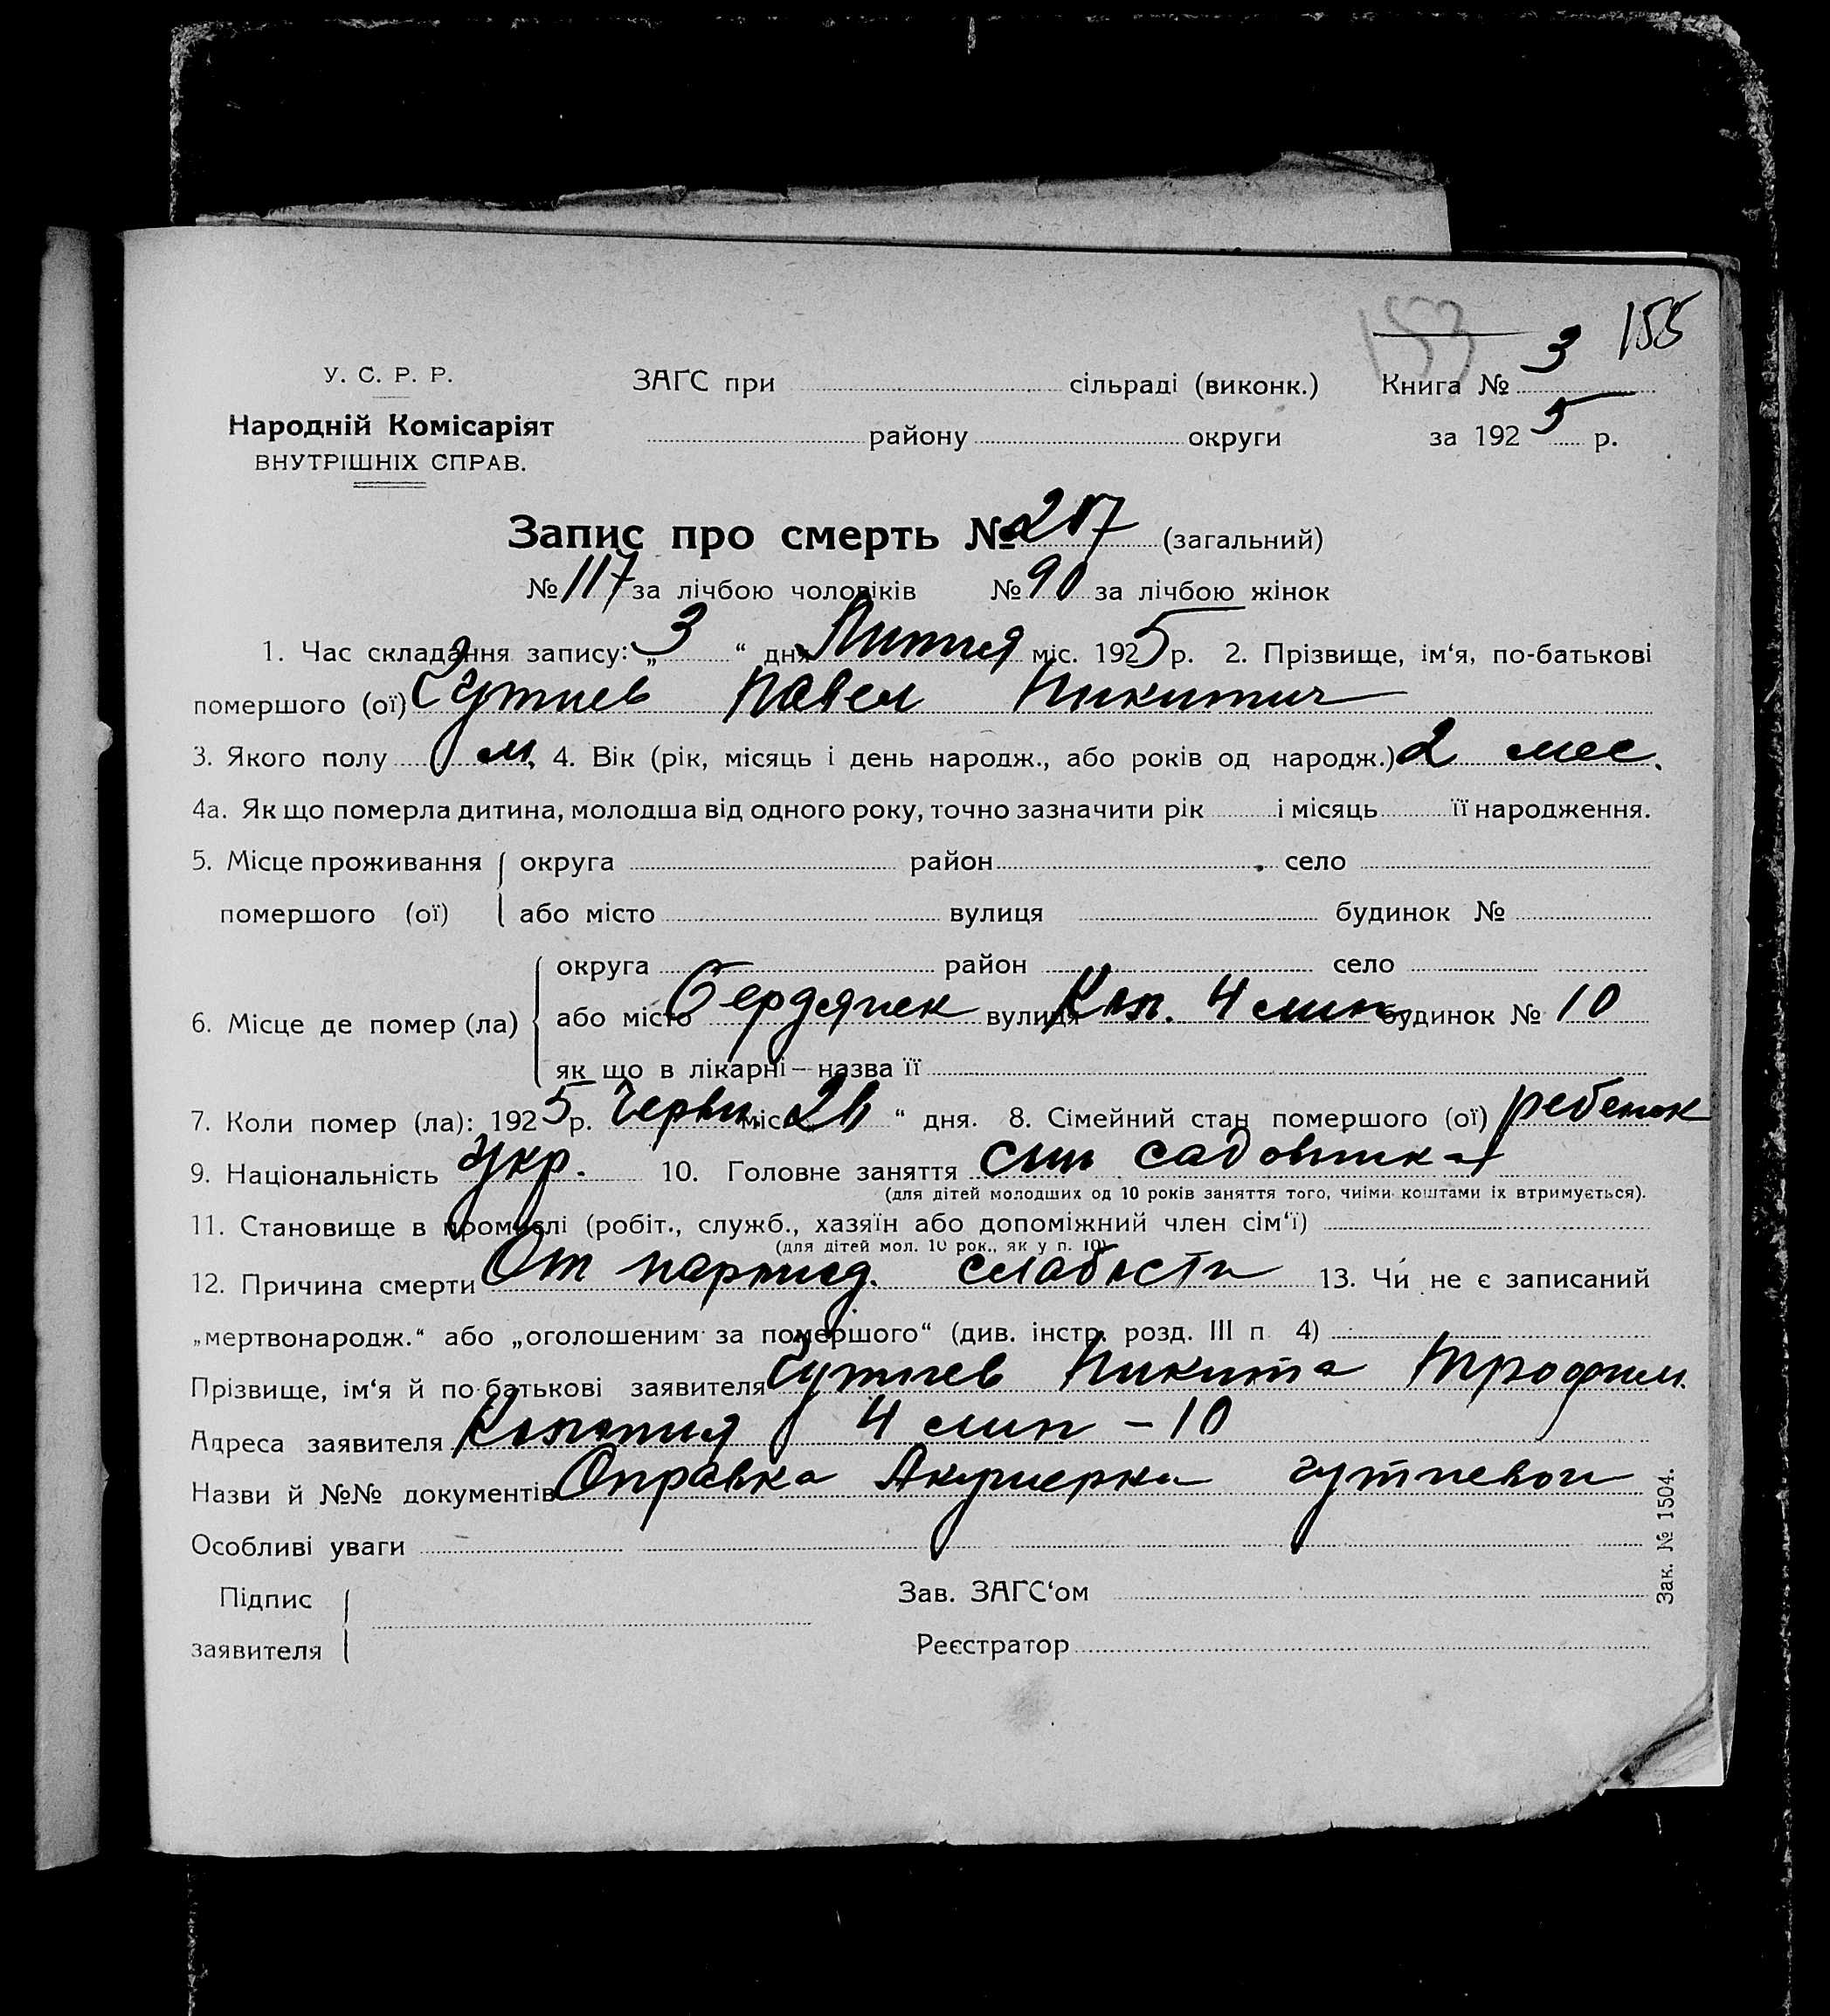 153 155
У. С. Р. Р. ЗАГС при сільраді (виконк.) Книга № 3
Народній Комісаріят району округи за 1925 р.
ВНУТРІШНІХ СПРАВ.
Запис про смерть № 207 (загальний)
№ 117 за лічбою чоловіків № 90 за лічбою жінок
1. Час складання запису: „3“ дня Липня міс. 1925 р. 2. Прізвище, ім‘я, по-батькові
помершого (ої) Гутнев Павел Никитич
3. Якого полу м. 4. Вік (рік, місяць і день народж., або років од народж.) 2 мес.
4а. Як що померла дитина, молодша від одного року, точно зазначити рік і місяць її народження.
5. Місце проживання округа район село
помершого (ої) або місто вулиця будинок №
округа район село
6. Місце де помер (ла) або місто Бердянск вулиця Кол. 4 лин. будинок № 10
як що в лікарні — назва її
7. Коли помер (ла): 1925 р. Червн. міс. „ “ дня. 8. Сімейний стан помершого (ої) ребенок
9. Національність укр. 10. Головне заняття сын садовника
(для дітей молодших од 10 років заняття того, чиїми коштами їх втримується).
11. Становище в промислі (робіт., служб., хазяїн або допоміжний член сім‘ї)
(для дітей мол. 10 рок., як у п. 10)
12. Причина смерти От слабости 13. Чи не є записаний
„мертвонародж.“ або „оголошеним за помершого“ (див. інстр. розд. III п 4)
Прізвище, ім‘я й по-батькові заявителя Гутнев Никита Трофим.
Адреса заявителя Колония 4 лин – 10
Назви й №№ документів Справка Акушерки Гутневой
Особливі уваги
Підпис Зав. ЗАГС‘ом
заявителя Реєстратор
Зак. № 1504.